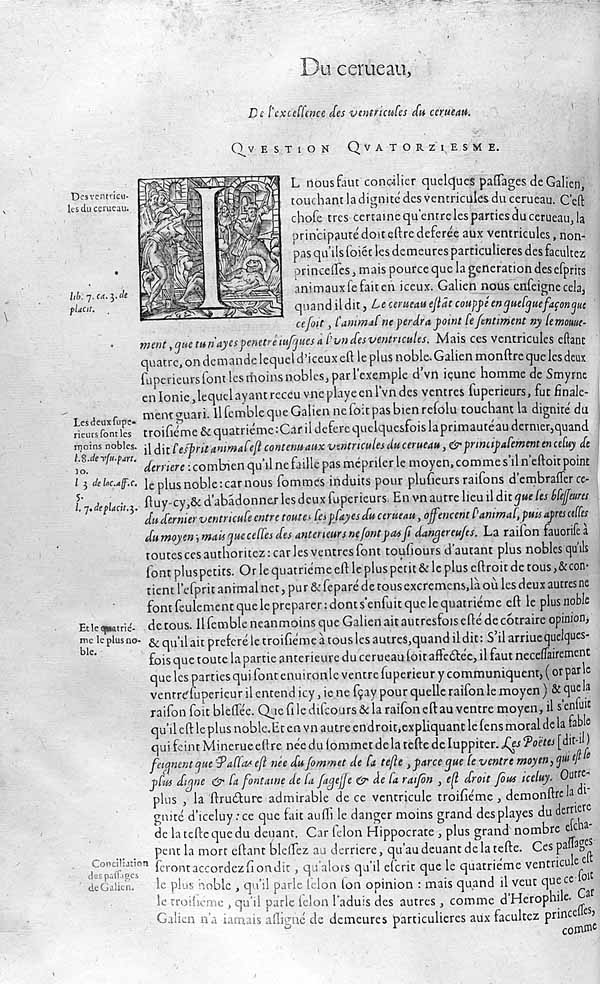 Du cerueau,
De l'excellence des ventricules du cerueau.
QVESTION QVATORZIESME.
Des ventricu-
les du cerueau.
IL nous faut concilier quelques paſſages de Galien,
touchant la dignité des ventricules du cerueau. C'eſt
choſe tres certaine qu'entre les parties du cerueau, la
principauté doit eſtre deferée aux ventricules, non-
pas qu'ils ſoiẽt les demeures particulieres des facultez
princeſſes, mais pource que la generation des eſprits
animaux ſe fait en iceux. Galien nous enſeigne cela,
lib. 7. ca. 3. de
placit.
quand il dit, Le cerueau eſtãt couppé en quelque façon que
ce ſoit, l'animal ne perdra point le ſentiment ny le mouue-
ment, que tu n'ayes penetré iuſques à l'vn des ventricules. Mais ces ventricules eſtant
quatre, on demande lequel d'iceux eſt le plus noble. Galien monſtre que les deux
ſuperieurs ſont les moins nobles, par l'exemple d'vn ieune homme de Smyrne
en Ionie, lequel ayant receu vne playe en l'vn des ventres ſuperieurs, fut finale-
Les deux ſupe-
rieurs ſont les
moins nobles.
l. 8. de vſu part.
10.
l 3 de loc. aff. c.
5.
l. 7. de placit. 3.
ment guari. Il ſemble que Galien ne ſoit pas bien reſolu touchant la dignité du
troiſiéme & quatriéme: Car il defere quelquesfois la primauté au dernier, quand
il dit l'eſprit animal eſt contenu aux ventricules du cerueau, & principalement en celuy de
derriere: combien qu'il ne faille pas mépriſer le moyen, comme s'il n'eſtoit point
le plus noble: car nous ſommes induits pour pluſieurs raiſons d'embraſſer ce-
ſtuy-cy, & d'abãdonner les deux ſuperieurs. En vn autre lieu il dit que les bleſſeures
du dernier ventricule entre toutes les playes du cerueau, offencent l'animal, puis apres celles
du moyen; mais que celles des anterieurs ne ſont pas ſi dangereuſes. La raiſon fauoriſe à
toutes ces authoritez: car les ventres ſont touſiours d'autant plus nobles qu'ils
ſont plus petits. Or le quatriéme eſt le plus petit & le plus eſtroit de tous, & con-
tient l'eſprit animal net, pur & ſeparé de tous excremens, là où les deux autres ne
font ſeulement que le preparer: dont s'enſuit que le quatriéme eſt le plus noble
Et le quatrié-
me le plus no-
ble.
de tous. Il ſemble neanmoins que Galien ait autresfois eſté de cõtraire opinion,
& qu'il ait preferé le troiſiéme à tous les autres, quand il dit: S'il arriue quelques-
fois que toute la partie anterieure du cerueau ſoit affectée, il faut neceſſairement
que les parties qui ſont enuiron le ventre ſuperieur y communiquent, (or par le
ventre ſuperieur il entend icy, ie ne ſçay pour quelle raiſon le moyen) & que la
raiſon ſoit bleſſée. Que ſi le diſcours & la raiſon eſt au ventre moyen, il s'enſuit
qu'il eſt le plus noble. Et en vn autre endroit, expliquant le ſens moral de la fable
qui feint Minerue eſtre née du ſommet de la teſte de Iuppiter. Les Poëtes [dit-il]
feignent que Pallas eſt née du ſommet de la teſte, parce que le ventre moyen, qui eſt le
plus digne & la fontaine de la ſageſſe & de la raiſon, eſt droit ſous iceluy. Outre-
plus, la ſtructure admirable de ce ventricule troiſiéme, demonſtre la di-
gnité d'iceluy: ce que fait auſſi le danger moins grand des playes du derriere
de la teſte que du deuant. Car ſelon Hippocrate, plus grand nombre eſcha-
pent la mort eſtant bleſſez au derriere, qu'au deuant de la teſte. Ces paſſages
Conciliation
des paſſages
de Galien.
ſeront accordez ſi on dit, qu'alors qu'il eſcrit que le quatriéme ventricule eſt
le plus noble, qu'il parle ſelon ſon opinion: mais quand il veut que ce ſoit
le troiſiéme, qu'il parle ſelon l'aduis des autres, comme d'Herophile. Car
Galien n'a iamais aſſigné de demeures particulieres aux facultez princeſſes,
comme